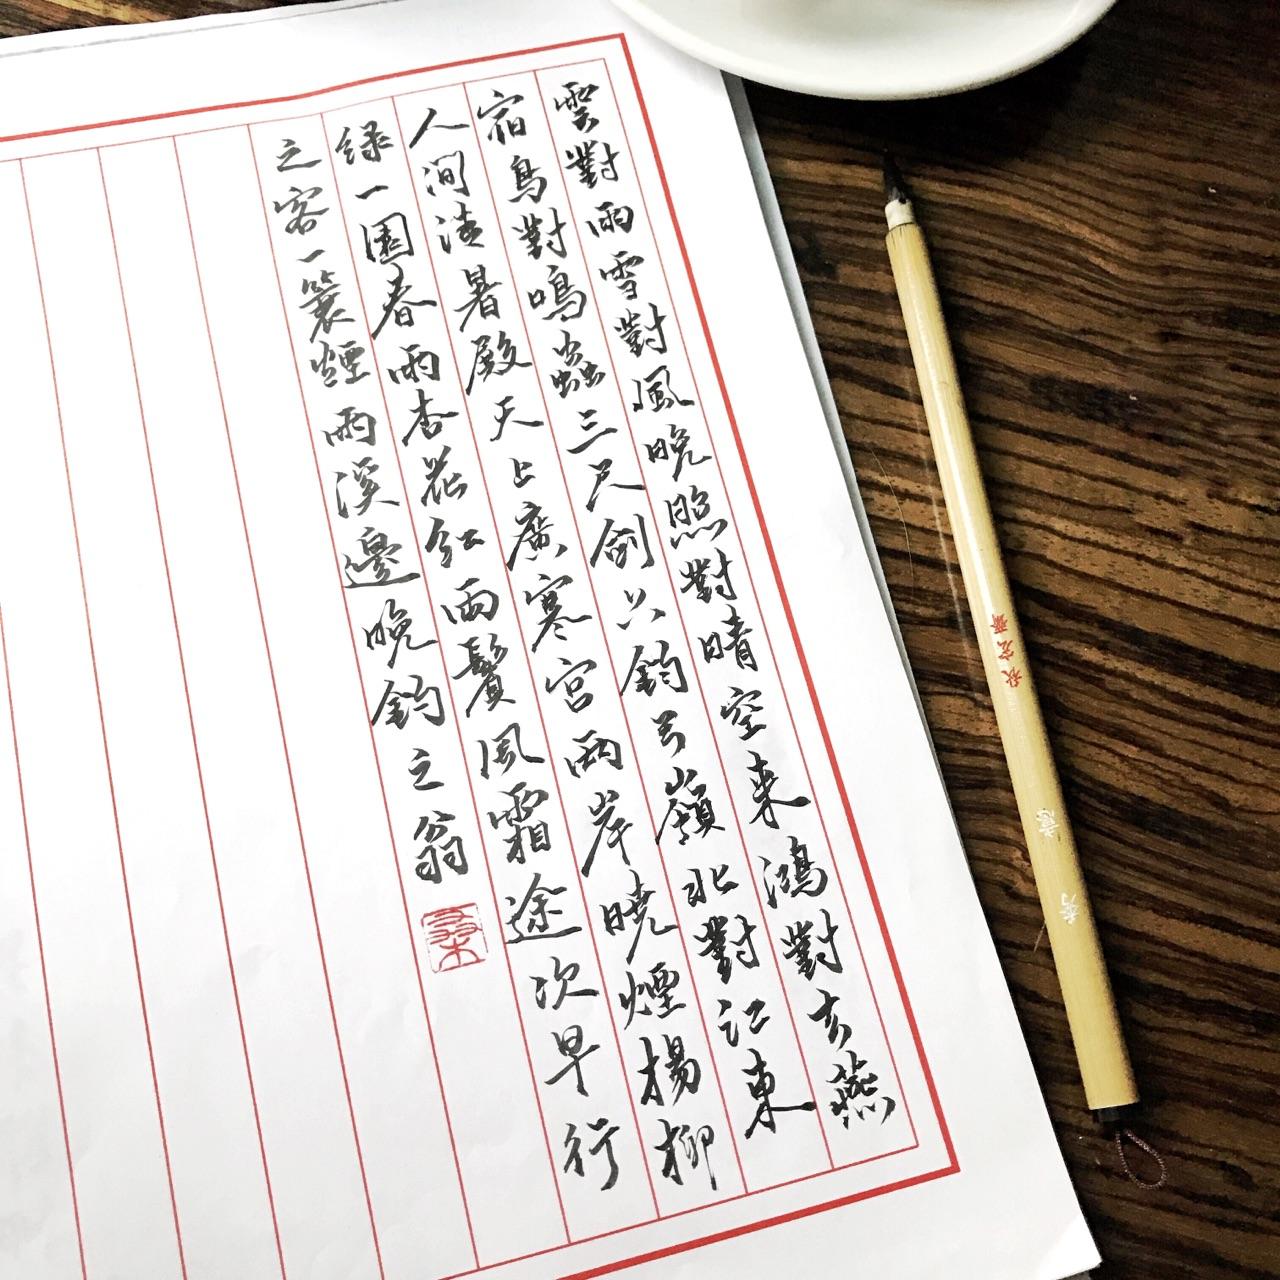 雲對雨雪對風晚照對晴空来鴻對去燕
宿鳥對鳴蟲三尺劍六鈞弓嶺北對江東
人间清暑殿天上廣寒宮兩岸曉煙楊柳
绿一園春雨杏花红兩鬢風霜途次早行
之客一蓑煙雨溪邊晚釣之翁
秋宏齋
秀意